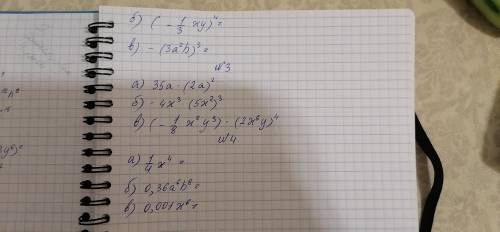 б) ( - 1/3 xy)⁴ =
в) - (3a²b)³ =
№3
а) 35a · (2a)²
б) - 4x³ · (5x²)³
в) ( - 1/8 x²y³) · (2x⁶y)⁴
№4
а) 1/4 x⁴ =
б) 0,36a⁶b⁸ =
в) 0,001x⁶ =